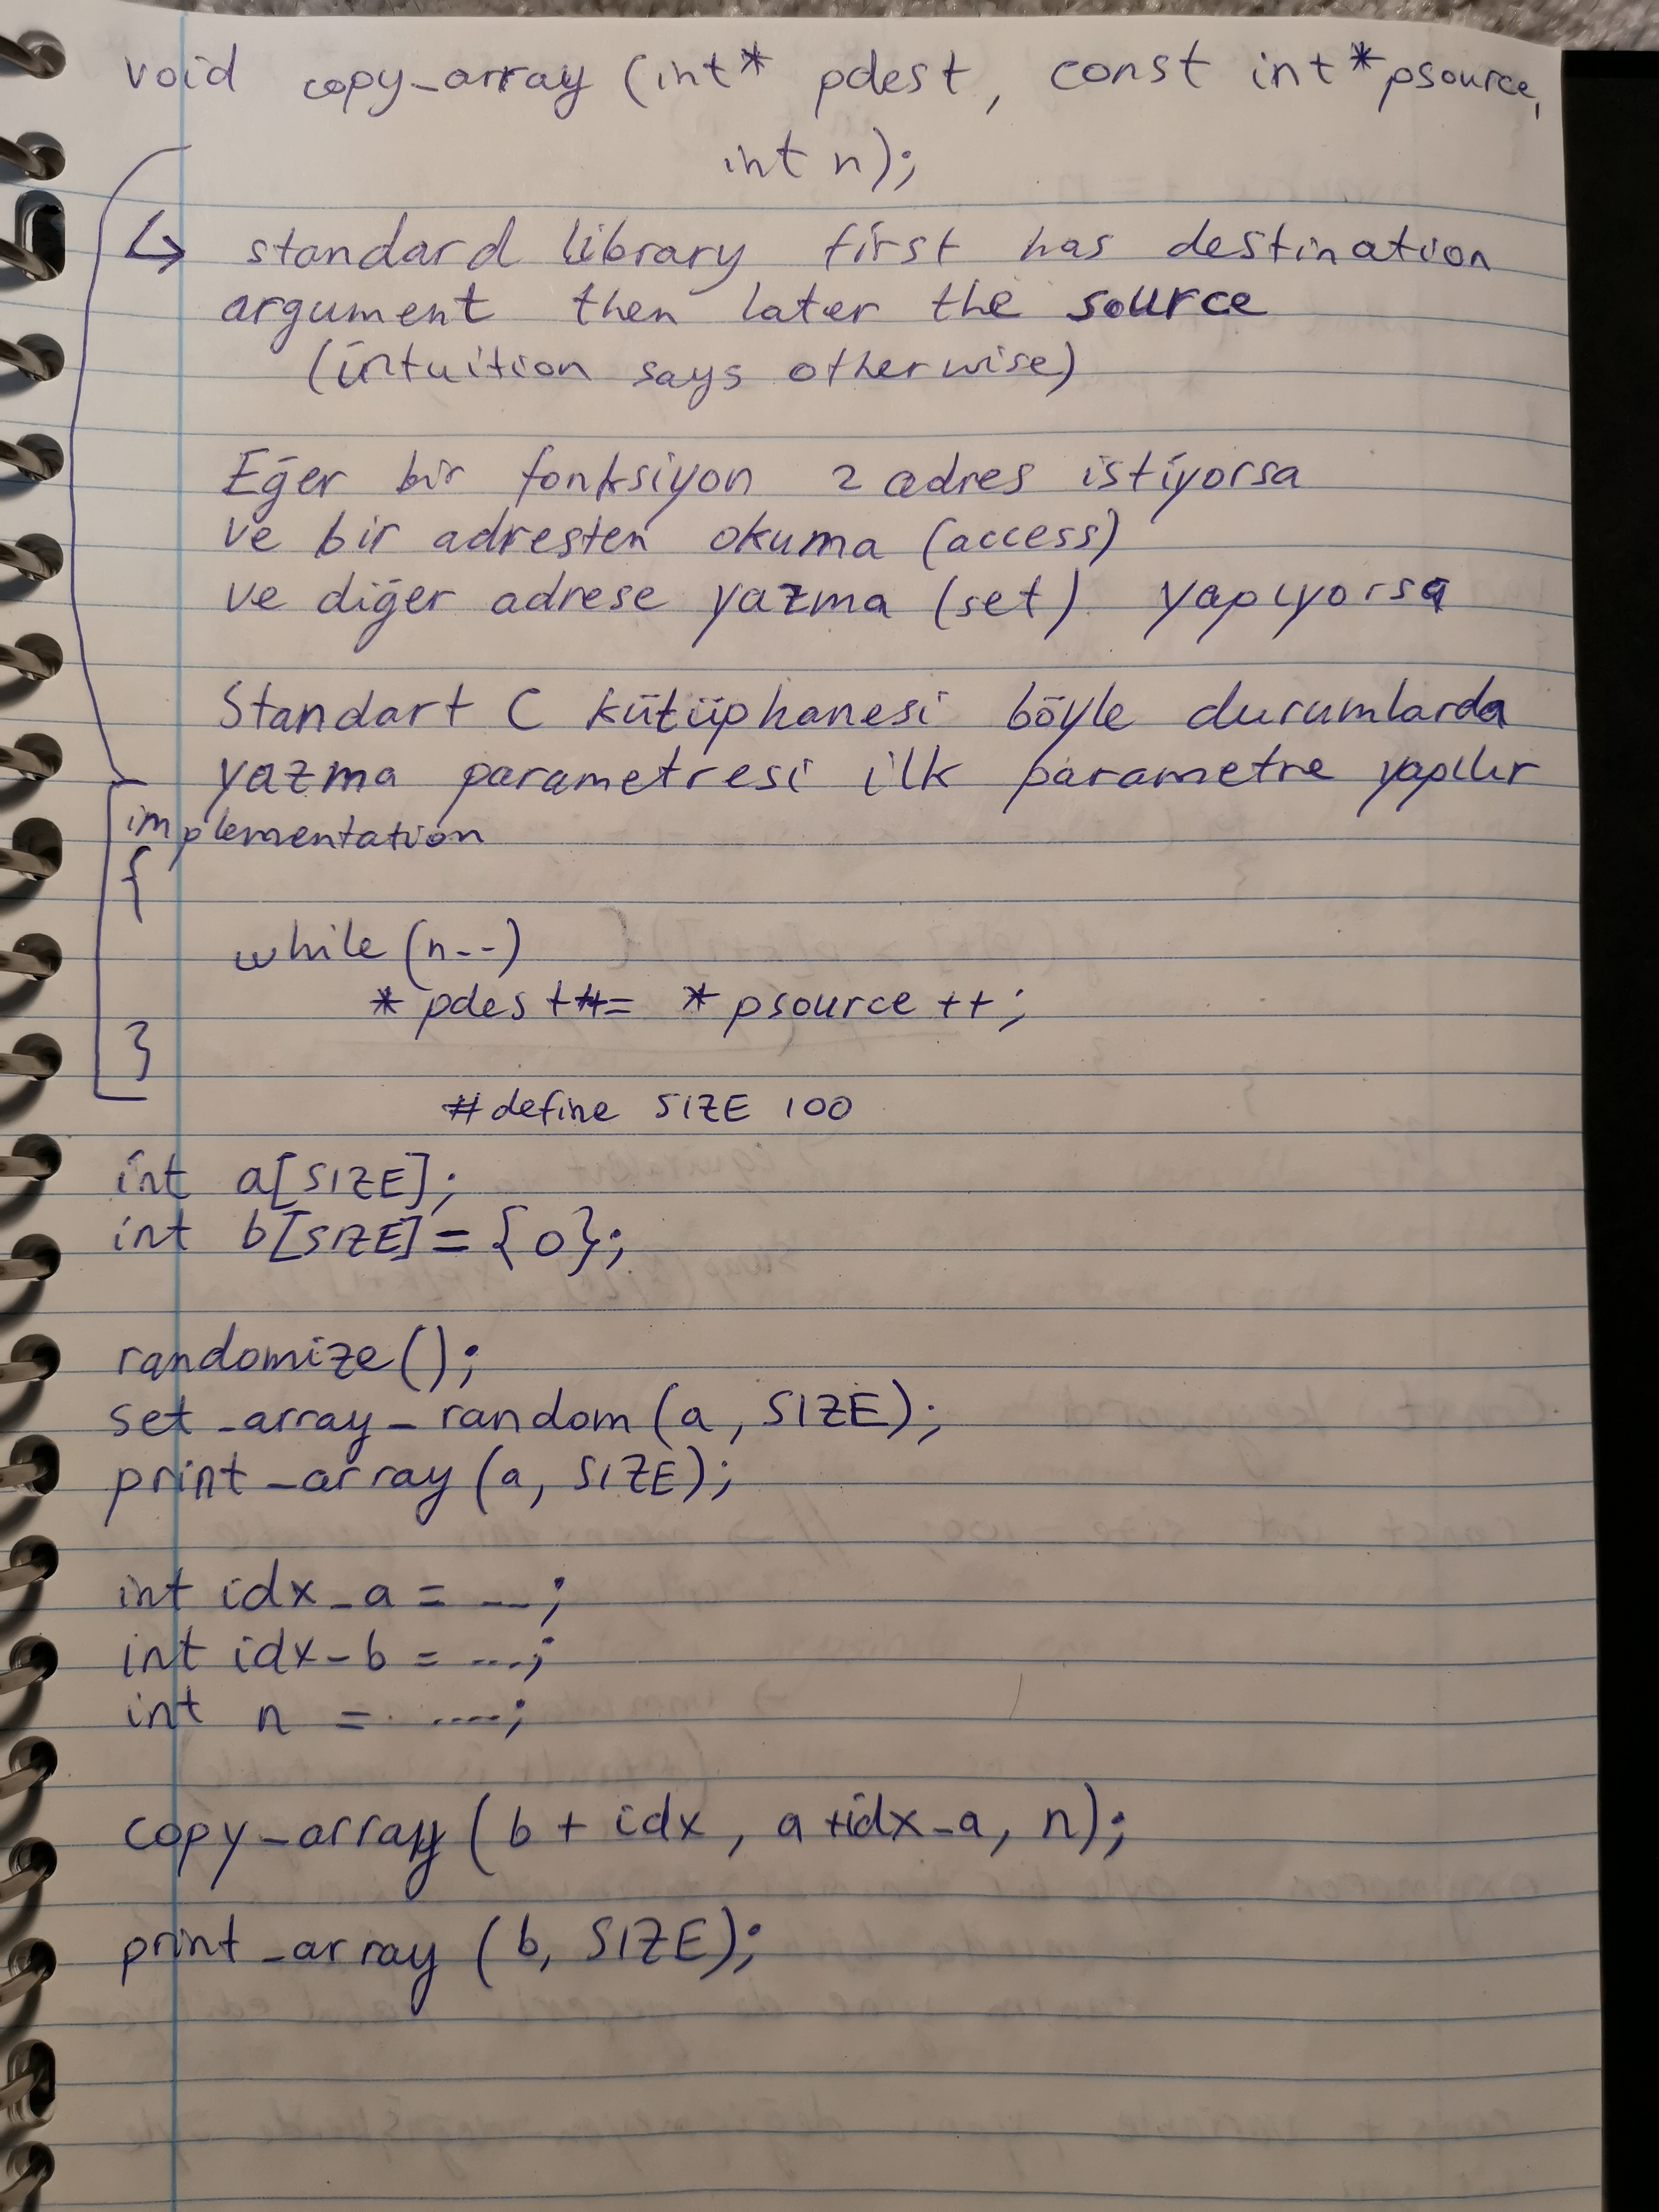 void copy_array (int* pdest, const int* psource,
int n);
↳ standard library first has destination
argument then later the source
(intuition says otherwise)
Eğer bir fonksiyon 2 adres istiyorsa
ve bir adresten okuma (access)
ve diğer adrese yazma (set) yapıyorsa
Standart C kütüphanesi böyle durumlarda
yazma parametresi ilk parametre yapılır
implementation
{
while (n--)
*pdest++= *psource++;
}
#define SIZE 100
int a[SIZE];
int b[SIZE]= {0};
randomize();
set_array_random(a, SIZE);
print_array(a, SIZE);
int idx_a = ...;
int idx_b = ....;
int n = .....;
copy_array(b + idx, a+idx_a, n);
print_array (b, SIZE);